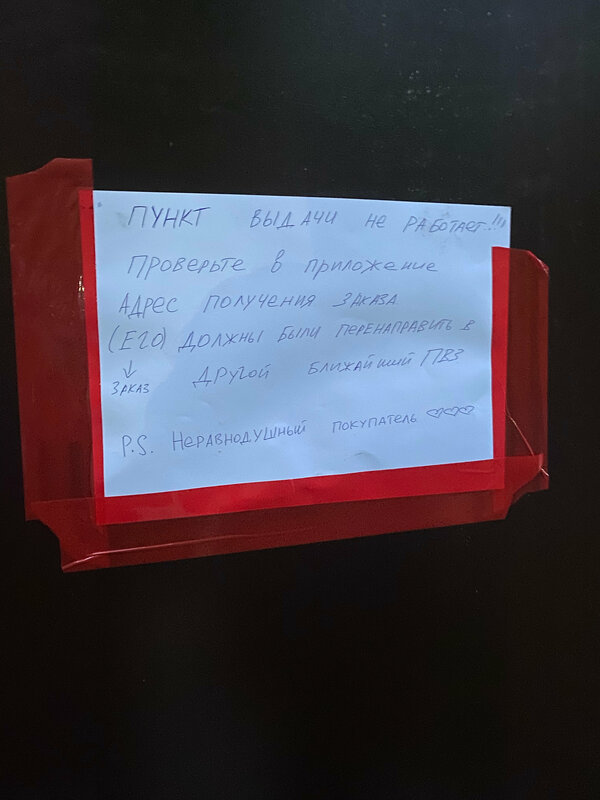 ПУНКТ ВЫДАЧИ НЕ РАБОТАЕТ!!!!
ПРОВЕРЬТЕ В ПРИЛОЖЕНИЕ
АДРЕС ПОЛУЧЕНИЯ ЗАКАЗА
(ЕГО) ДОЛЖНЫ БЫЛИ ПЕРЕНАПРАВИТЬ В
↓
ЗАКАЗ ДРУГОЙ БЛИЖАЙШИЙ ПВЗ
P.S. НЕРАВНОДУШНЫЙ ПОКУПАТЕЛЬ ♡♡♡